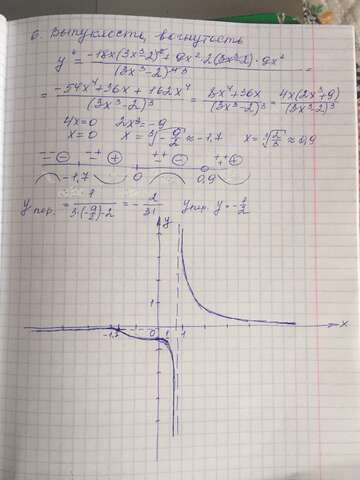 6. Выпуклость, вогнутость
y" = (-18x(3x³-2)² + 9x²·2(3x³-2)·9x²)/(3x³-2)⁴ =
= (-54x⁴+36x+162x⁴)/(3x³-2)³ = /(3x³-2)³ = 4x(2x³+9)/(3x³-2)³
4x=0 2x³=-9
x=0 x=∛(-9/2)≈-1,7 x=∛(2/3)≈0,9
-- ⊖ -+ ⊕ ++ ⊖ ++ ⊕
-1,7 0 0,9
y пер. = 1/(3·(-9/2)-2) = -2/31 y пер. y=-1/2
y
1
-1,7 0 1 1 x